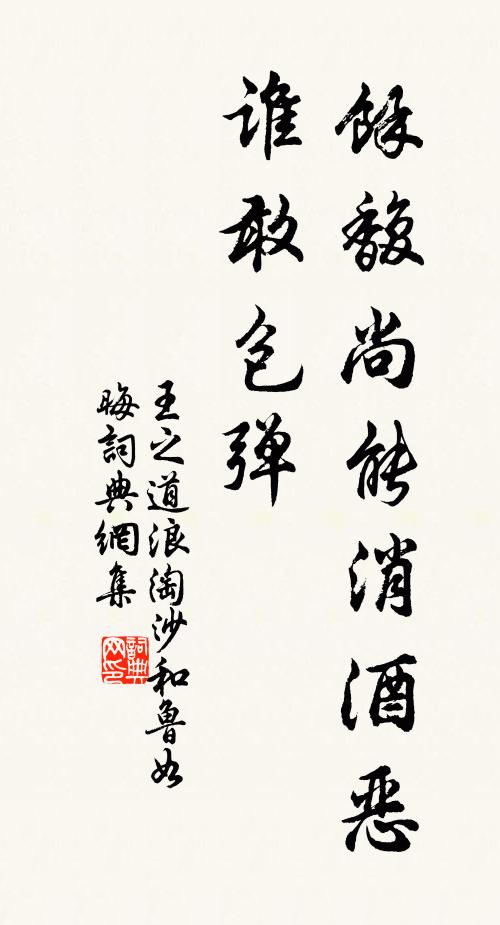 餘馥尚能消酒惡
誰敢包弹
王之道浪淘沙和魯如
晦詞典網集
詞典网印